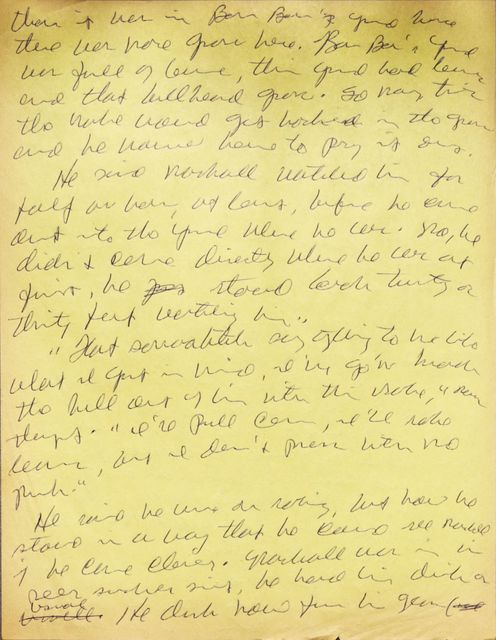 than it was in Bon Bon's yard here
there was more grass here. Bon Bon's yard
was full of leaves, this yard had leaves
and that bullhead grass. So many times
the rake would get hooked in the grass
and he would have to pry it out.
He said Marshall watched him for
half an hour, at least, before he came
out into the yard where he was. No, he
didn't come directly where he was at
first, he stood back twenty or
thirty feet watching him.
"That sonofabitch say anything to me like
what I got in mind, I'm go'n knock
the hell out of him with this rake,"
"I'll pull corn, I'll rake
leaves, but I don't
punk."
He said he was on raking, but now he
stood in a way that he could see Marshall
if he came closer. Marshall was in his
seer sucker suit, he had his drink as
usual. He drink now from his